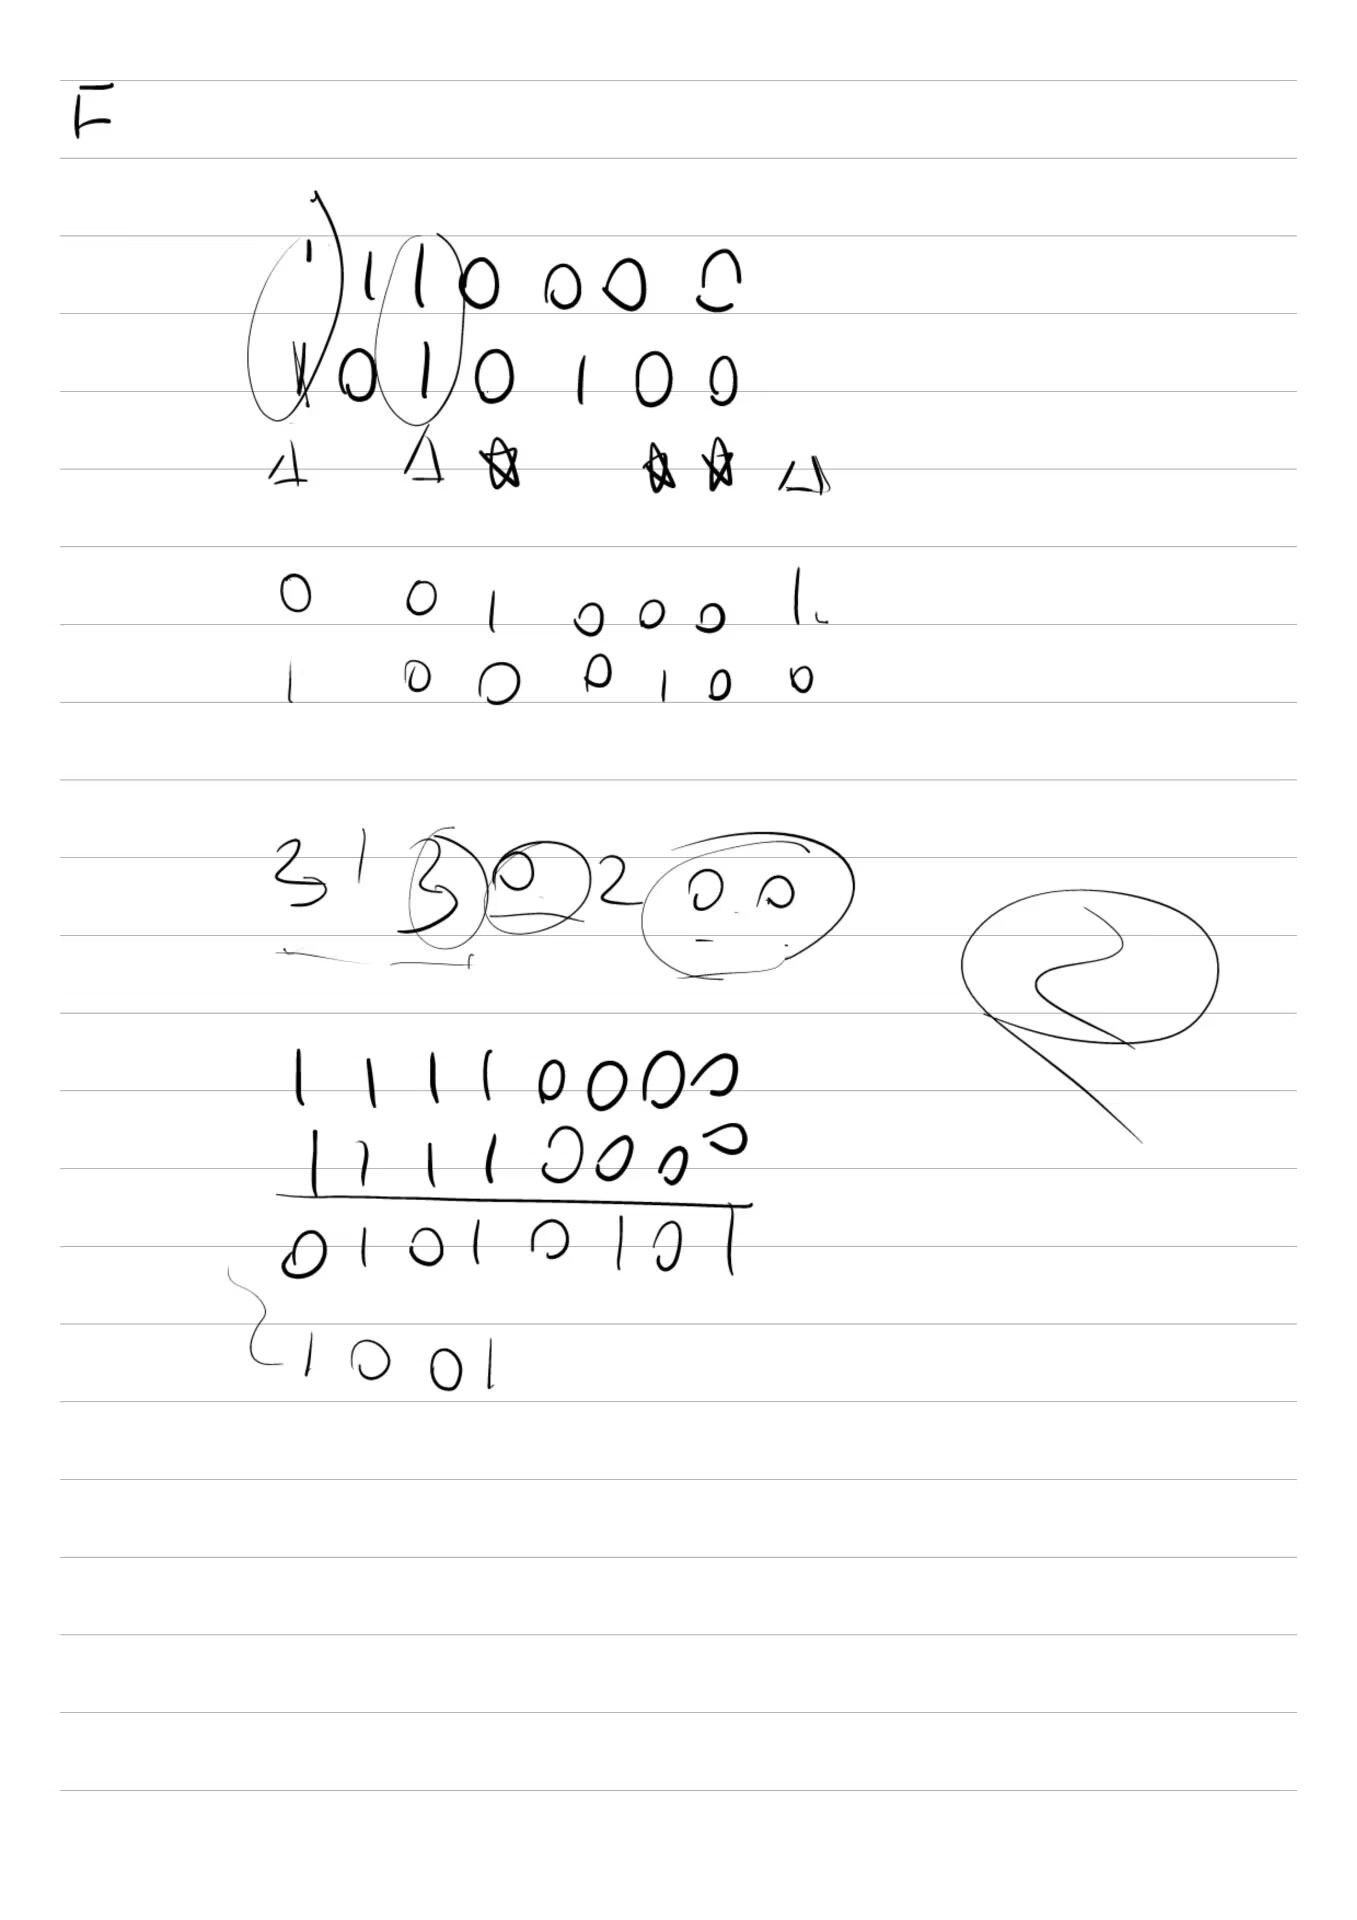 F
1 1 1 0 0 0 0
1 0 1 0 1 0 0
△ △ ☆ ☆ ☆ △
0 0 1 0 0 0 1
1 0 0 0 1 0 0
3 1 3 0 2 0 0
2
1 1 1 1 0 0 0 0
1 1 1 1 0 0 0 0
0 1 0 1 0 1 0 1
1 0 0 1